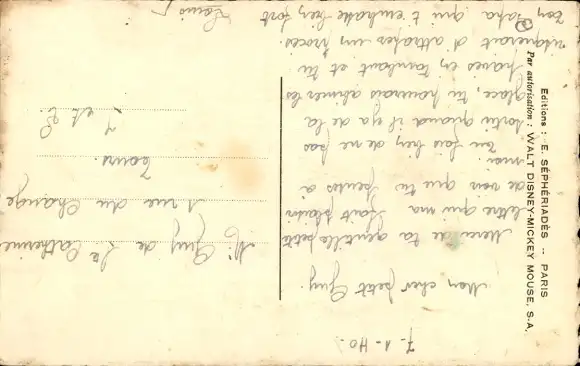 7-1-40.
Mon cher petit Guy.
Merci de ta gentille petite
lettre qui m'a fait plaisir
de voir que tu penses à
moi.
Tu fais bien de ne pas
sortir quand il y a de la
glace, tu pourrais abimer les
pavés en tombant et tu
risquerait d'attraper un procès.
Ton papa qui t'embrasse bien fort
Louis
M. Guy de Ste Catherine
1 rue du Change
Tours.
I et L
Editions : E. SÉPHÉRIADÈS -- PARIS
Par autorisation : WALT DISNEY-MICKEY MOUSE, S.A.